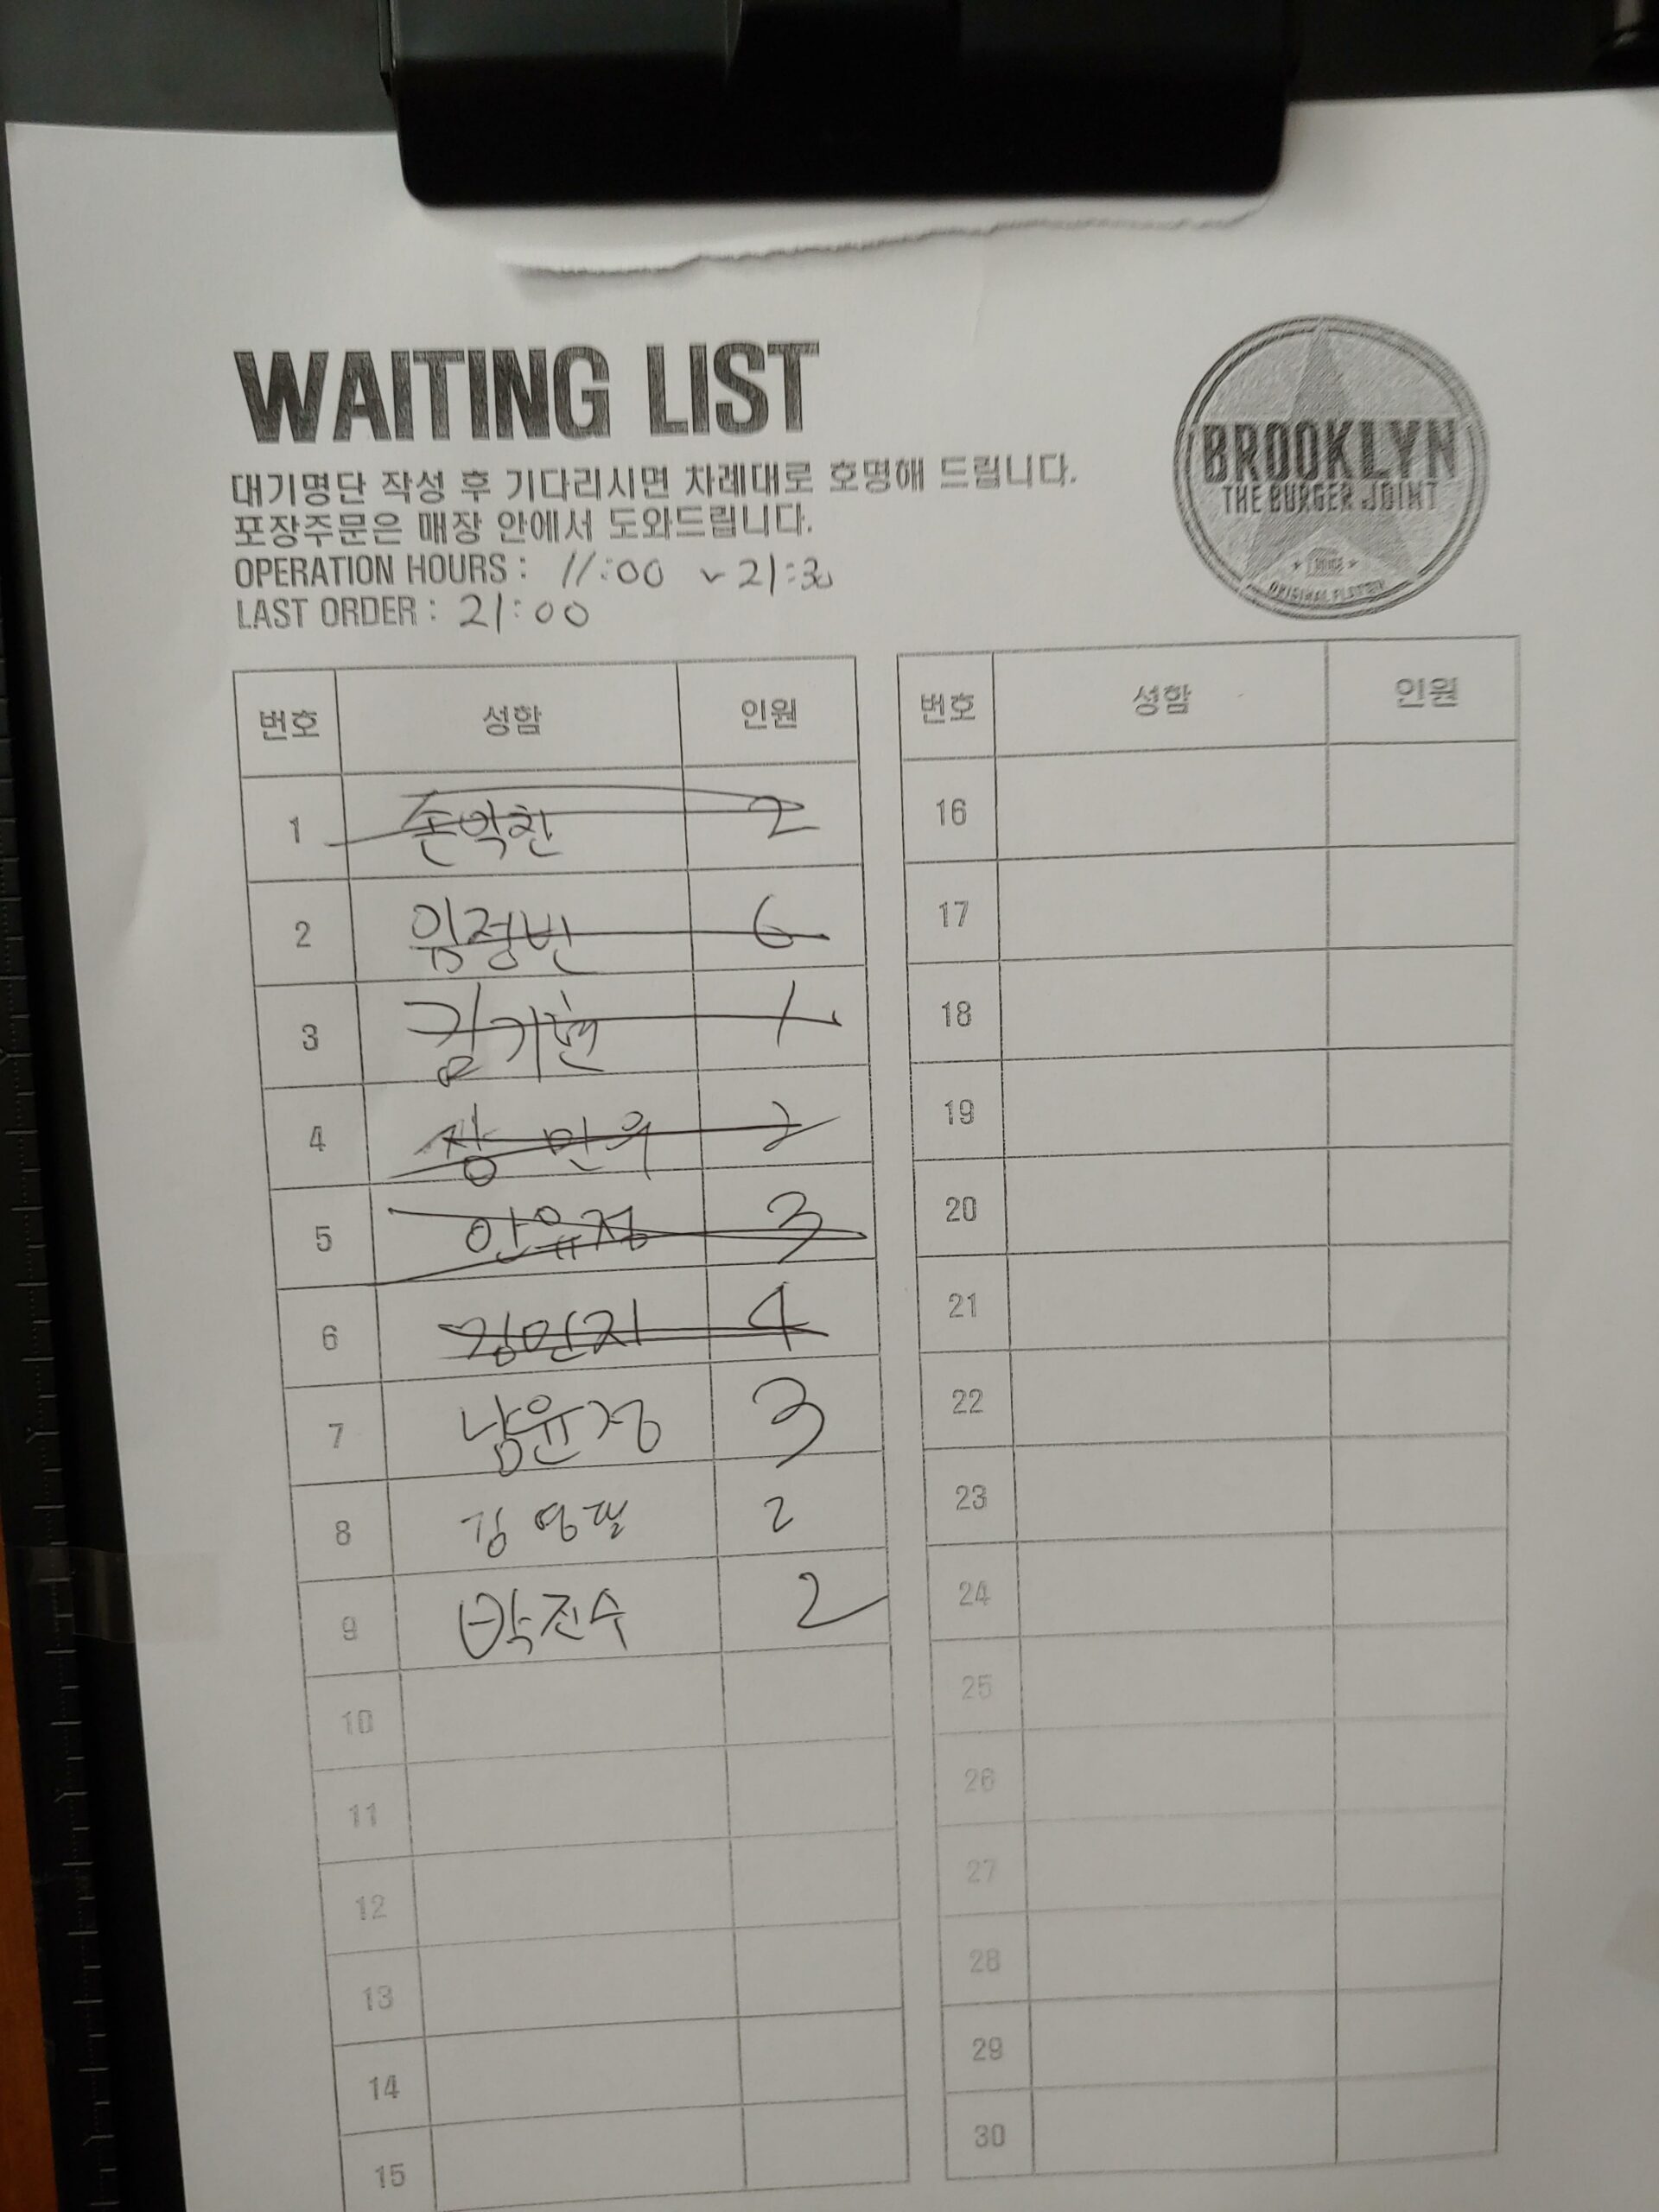 WAITING LIST
대기명단 작성 후 기다리시면 차례대로 호명해 드립니다.
포장주문은 매장 안에서 도와드립니다.
OPERATION HOURS : 11:00 ~ 21:30
LAST ORDER : 21:00
BROOKLYN
THE BURGER JOINT
번호 성함 인원
1 2
2 임정빈 6
3 1
4 장민욱 2
5 안유정 3
6 김민지 4
7 남윤정 3
8 김영필 2
9 박진수 2
10
11
12
13
14
15
번호 성함 인원
16
17
18
19
20
21
22
23
24
25
26
27
28
29
30